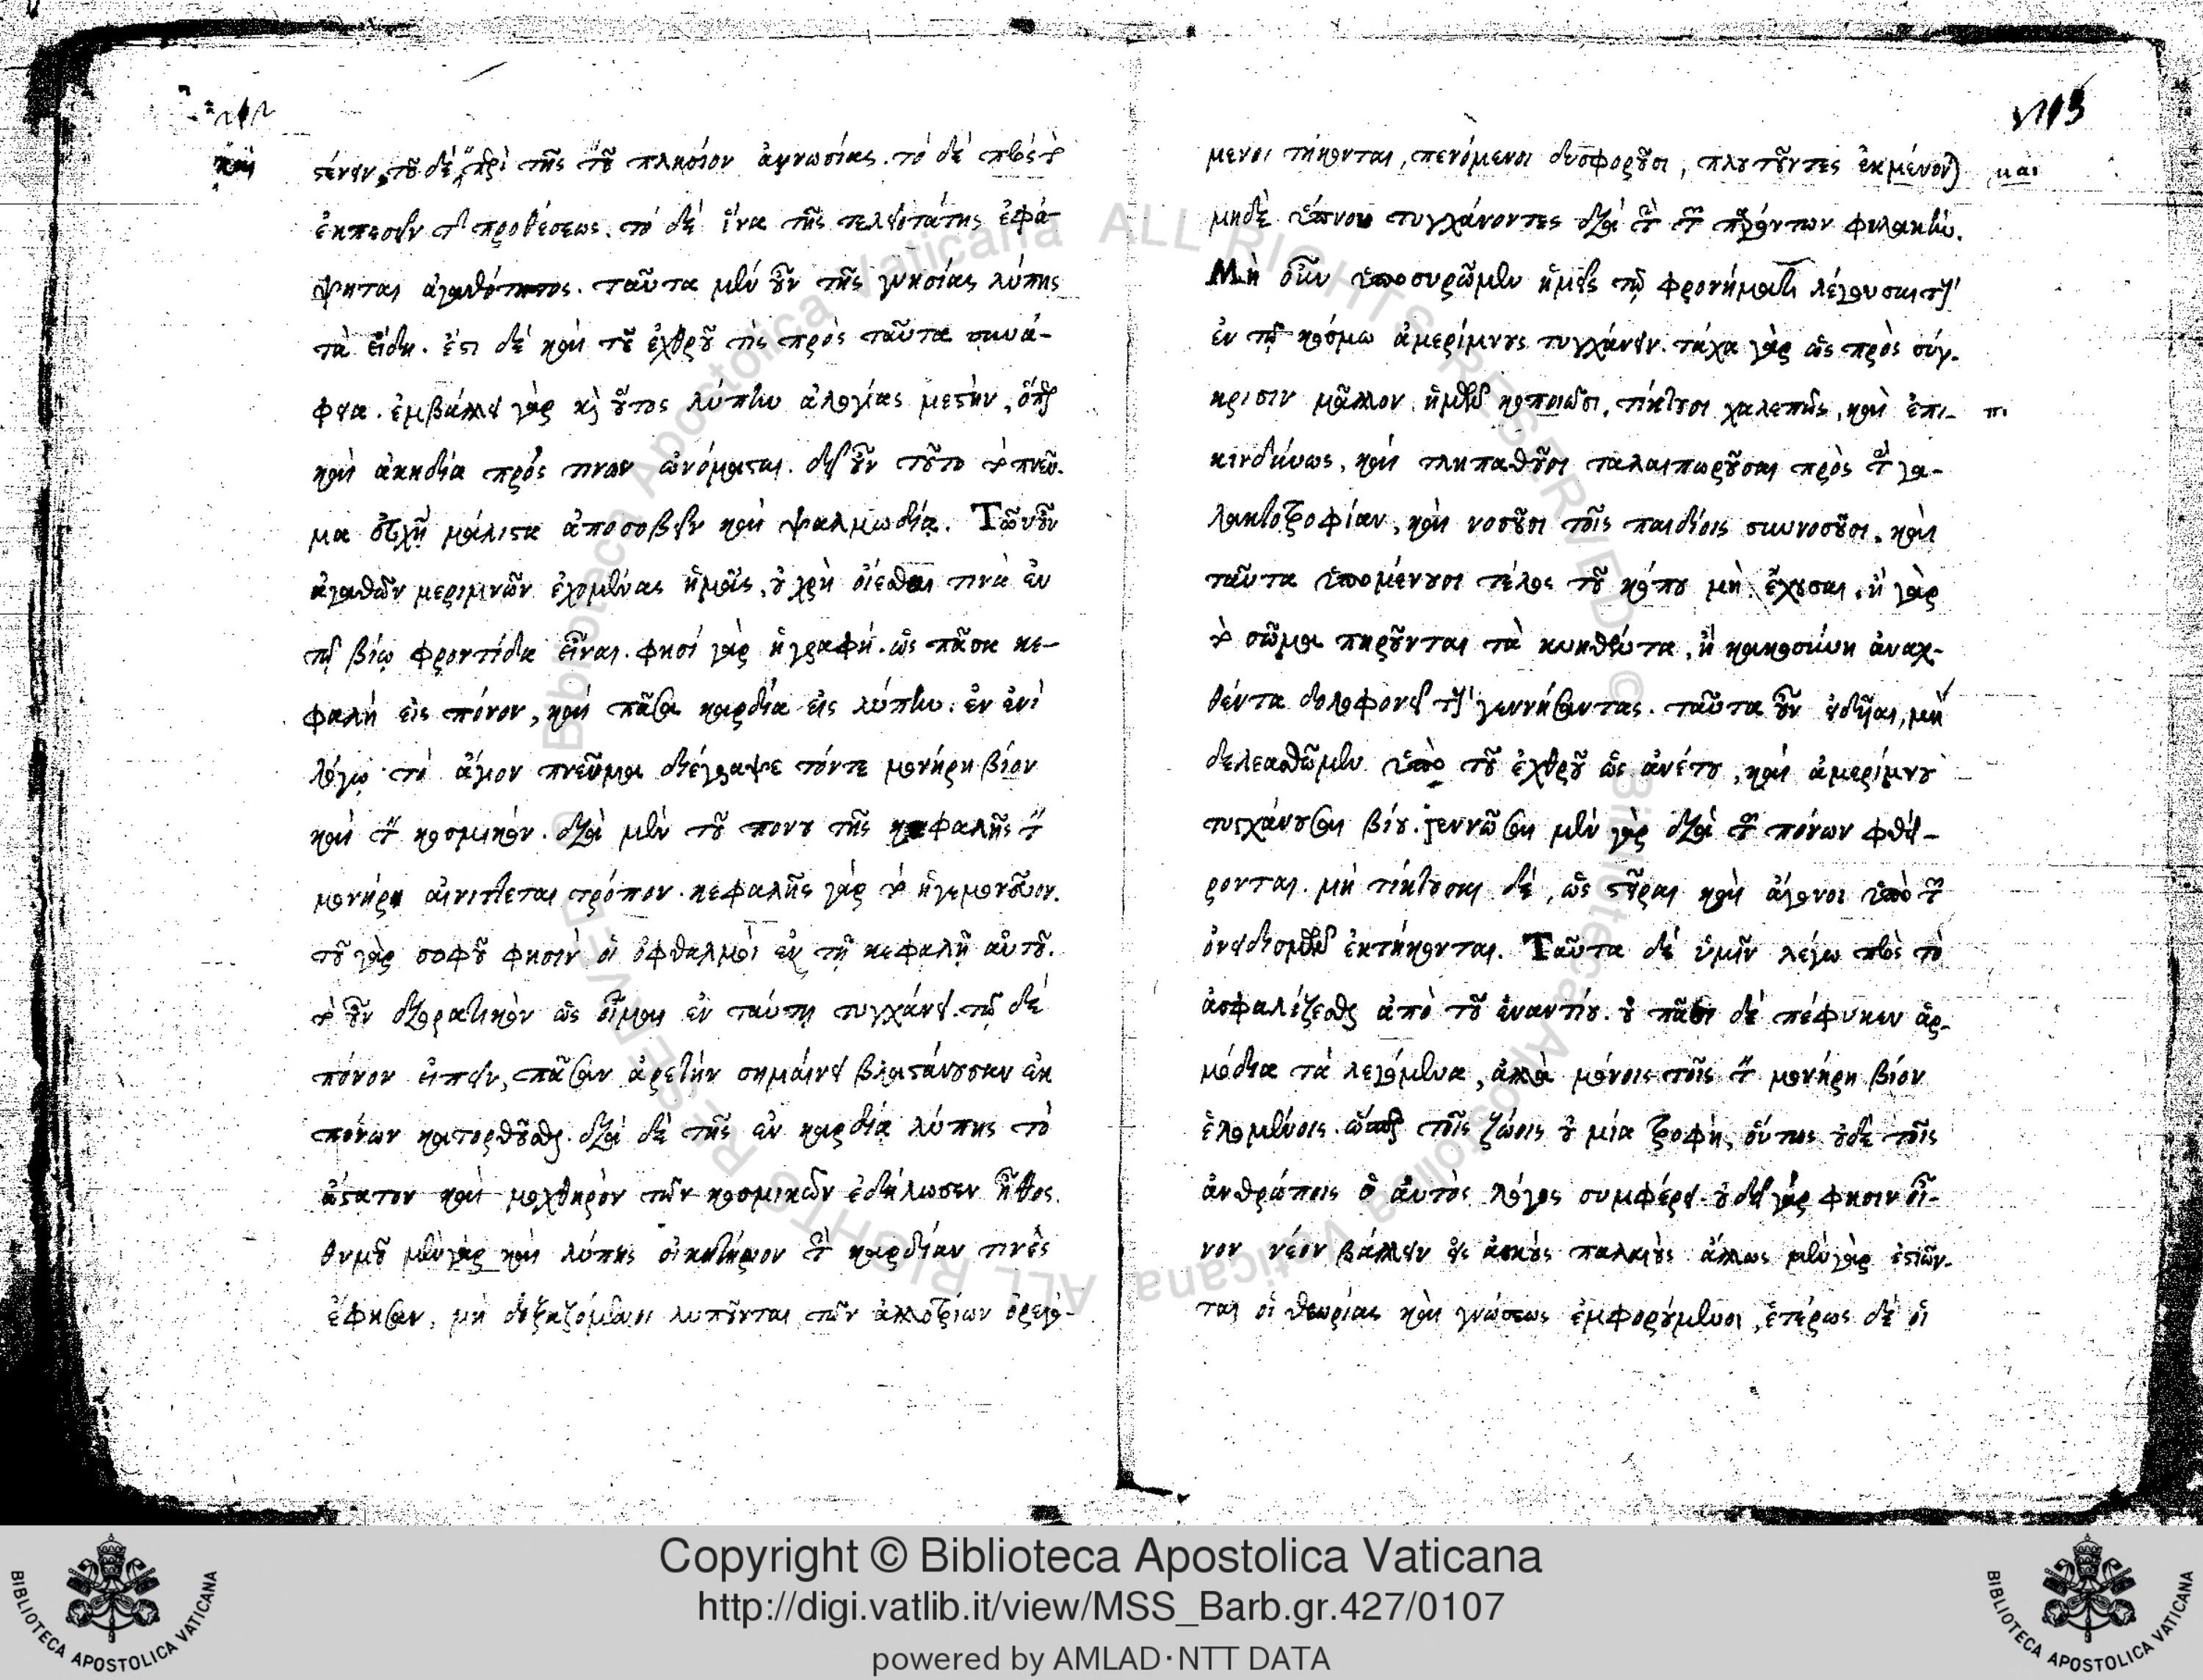 στένειν, τοῦ δὲ περὶ τῆς τοῦ πλησίον ἀγνωσίας. τὸ δὲ πρὸς τὸ
ἐκπεσεῖν τῆς προθέσεως. τὸ δὲ ἵνα τῆς τελειοτάτης ἐφά-
ψηται ἀγαθότητος. ταῦτα μὲν οὖν τῆς γνησίας λύπης
τὰ εἴδη. ἔστι δὲ καὶ τοῦ ἐχθροῦ τὶς πρὸς ταῦτα συνά-
φεια. ἐμβάλλει γὰρ καὶ οὗτος λύπην ἀλογίας μεστὴν, ὅπερ
καὶ ἀκηδία πρός τινων ὠνόμασται. δεῖ οὖν τοῦτο τὸ πνεῦ-
μα εὐχῇ μάλιστα ἀποσοβεῖν καὶ ψαλμωδίᾳ. Τῶν οὖν
ἀγαθῶν μεριμνῶν ἐχομένας ἡμᾶς, οὐ χρὴ οἴεσθαι τινὰ ἐν
τῷ βίῳ φροντίδα εἶναι. φησὶ γὰρ ἡ γραφή. ὡς πᾶσα κε-
φαλὴ εἰς πόνον, καὶ πᾶσα καρδία εἰς λύπην. ἐν ἑνὶ
λόγῳ τὸ ἅγιον πνεῦμα διέγραψε τόντε μονήρη βίον
καὶ τὸν κοσμικόν. διὰ μὲν τοῦ πόνου τῆς κεφαλῆς τὸν
μονήρη αἰνίττεται τρόπον. κεφαλῆς γὰρ τὸ ἡγεμονικόν.
τοῦ γὰρ σοφοῦ φησὶν οἱ ὀφθαλμοὶ ἐν τῇ κεφαλῇ αὐτοῦ.
τὸ οὖν διορατικὸν ὡς οἶμαι ἐν ταύτῃ τυγχάνει. τῷ δὲ
πόνον εἰπεῖν, πᾶσαν ἀρετὴν σημαίνει βλαστάνουσαν ἐκ
πόνων κατορθοῦσθαι. διὰ δὲ τῆς ἐν καρδίᾳ λύπης τὸ
ἄστατον καὶ μοχθηρὸν τῶν κοσμικῶν ἐδήλωσεν ἦθος.
θυμοῦ μὲν γὰρ καὶ λύπης οἰκητήριον τὴν καρδίαν τινὲς
ἔφησαν. μὴ δοξαζόμενοι λυποῦνται τῶν ἀλλοτρίων ὀρεγό-
μενοι τήκονται, πενόμενοι δυσφοροῦσι, πλουτοῦντες ἐκμένονται
μηδὲ ὕπνου τυγχάνοντες διὰ τὴν τῶν προσόντων φυλακὴν.
Μὴ οὖν ὑποσυρῶμεν ἡμεῖς τῷ φρονήματι λέγουσαι τοὺς
ἐν τῷ κόσμῳ ἀμερίμνους τυγχάνειν. τάχα γὰρ ὡς πρὸς σύγ-
κρισιν μᾶλλον ἡμῶν κοπιῶσι, τίκτουσι χαλεπῶς, καὶ ἐπι-
κινδύνως, καὶ τληπαθοῦσι ταλαιπωροῦσαι πρὸς τὴν γα-
λακτοτροφίαν, καὶ νοσοῦσι τοῖς παιδίοις συννοσοῦσι, καὶ
ταῦτα ὑπομένουσι τέλος τοῦ κόπου μὴ ἔχουσαι. ἢ γὰρ
τὸ σῶμα πηροῦνται τὰ κυηθέντα, ἢ κακοσύνη ἀναχ-
θέντα δολοφονεῖ τοὺς γεννήσαντας. ταῦτα οὖν εἰδυῖαι, μὴ
δελεασθῶμεν ὑπὸ τοῦ ἐχθροῦ ὡς ἀνέτου, καὶ ἀμερίμνου
τυγχάνουσαι βίου. γεννῶσαι μὲν γὰρ διὰ τῶν πόνων φθεί-
ρονται. μὴ τίκτουσαι δὲ, ὡς στεῖραι καὶ ἄγονοι ὑπὸ τῶν
ὀνειδισμῶν ἐκτήκονται. Ταῦτα δὲ ὑμῖν λέγω πρὸς τὸ
ἀσφαλίζεσθαι ἀπὸ τοῦ ἐναντίου. οὐ πᾶσι δὲ πέφυκεν ἁρ-
μόδια τὰ λεγόμενα, ἀλλὰ μόνοις τοῖς τὸν μονήρη βίον
ἑλομένοις. ὥσπερ τοῖς ζώοις οὐ μία τροφὴ, οὕτως οὐδὲ τοῖς
ἀνθρώποις ὁ αὐτὸς λόγος συμφέρει. οὐ δεῖ γάρ φησιν οἶ-
νον νέον βάλλειν εἰς ἀσκοὺς παλαιούς. ἄλλως μὲν γὰρ ἑστιῶν-
ται οἱ θεωρίας καὶ γνώσεως ἐμφορούμενοι, ἑτέρως δὲ οἱ
Copyright © Biblioteca Apostolica Vaticana
http://digi.vatlib.it/view/MSS_Barb.gr.427/0107
powered by AMLAD·NTT DATA